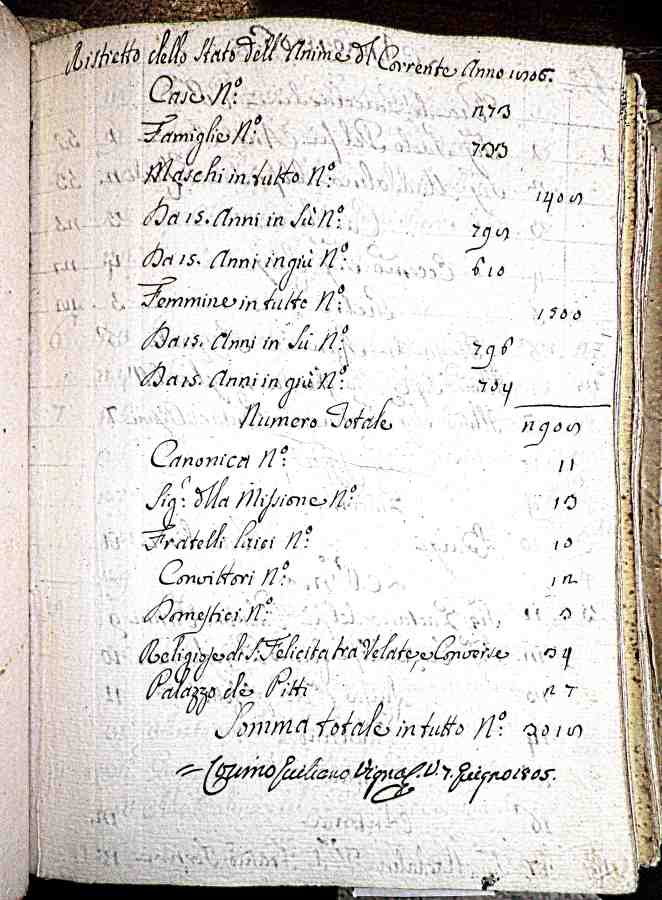 Ristretto dello Stato dell'Anime del Corrente Anno
Case N.° 273
Famiglie N.° 733
Maschi in tutto N.° 1405
Da 15. Anni in Sù N.° 795
Da 15. Anni in giù N.° 610
Femmine in tutto N.° 1500
Da 15. Anni in Sù N.° 796
Da 15. Anni in giù N.° 704
Numero Totale 2905
Canonica N.° 11
Sig.ri della Missione N.° 13
Fratelli laici N.° 10
Convittori N.° 12
Domestici N.° 3
Religiose di S. Felicita trà Velate, e Converse 34
Palazzo dè Pitti 27
Somma totale in tutto N.° 3015
Cosimo Giuliano 7. Giugno 1805.